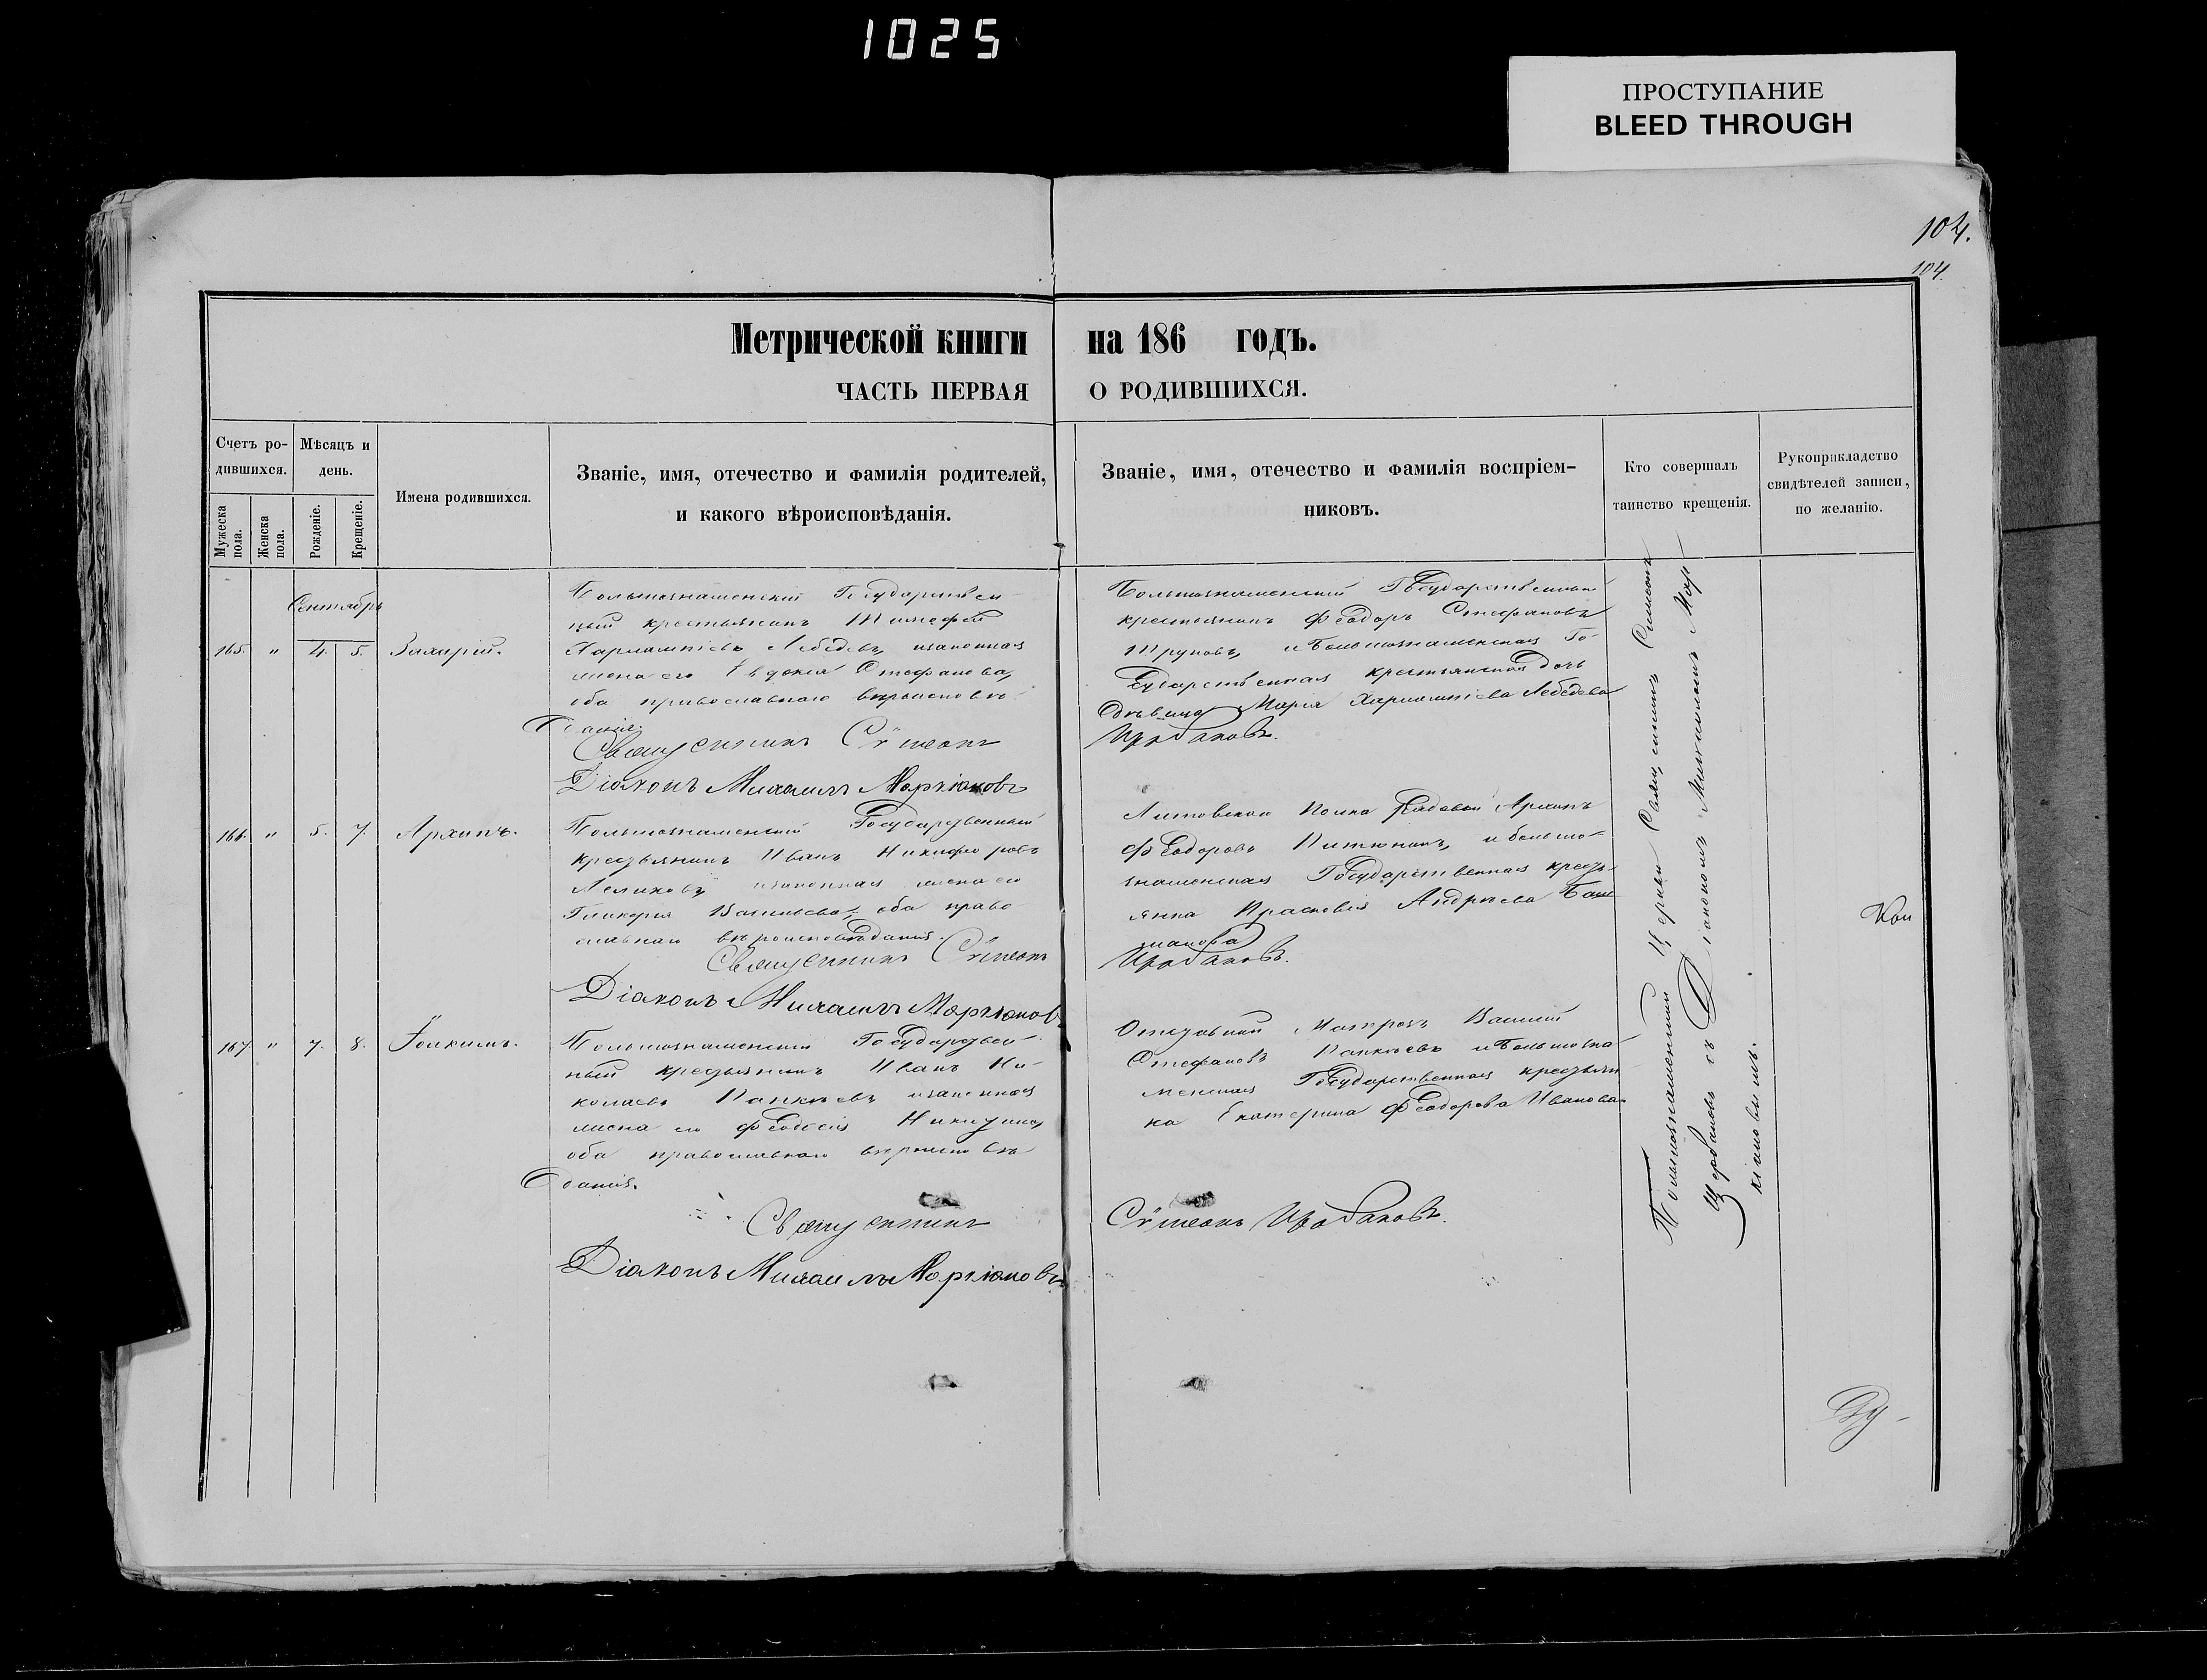 1025
ПРОСТУПАНИЕ
BLEED THROUGH
104.
104.
Метрической книги на 186 годъ.
ЧАСТЬ ПЕРВАЯ О РОДИВШИХСЯ.
Счетъ ро-
дившихся.
Мужеска
пола.
Женска
пола.
Мѣсяцъ и
день.
Рожденіе.
Крещеніе.
Имена родившихся.
Званіе, имя, отечество и фамилія родителей,
и какого вѣроисповѣданія.
Званіе, имя, отечество и фамилія воспріем-
никовъ.
Кто совершалъ
таинство крещенія.
Рукоприкладство
свидѣтелей записи,
по желанію.
Сентябрь
165. " 4. 5. Захарій.
Большознаменскій Государствен
ный крестьянинъ Тимофей
Харлампіевъ Лебедевъ, изаконная
жена его Евдокія Стефанова,
оба православнаго вѣроисповѣ
данія.
Священникъ Сѵмеонъ
Діаконъ Михаилъ
Большознаменскій Государственный
крестьянинъ Феодоръ Стефановъ
Труновъ, и Большознаменская Го-
сударственная крестьянская дочь
дѣвица Марія Харлампіева Лебедева
166. " 5. 7. Архипъ.
Большознаменскій Государственный
крестьянинъ Иванъ Никифоровъ
изаконная жена его
Гликерія Васильева, оба право
славнаго вѣроисповѣданія.
Священникъ Сѵмеонъ
Діаконъ Михаилъ
Литовскаго Полка Рядовой Архипъ
Феодоровъ и Больше-
знаменская Государственная кресть-
янка Прасковія Андреева
167. " 7. 8. Іоакимъ.
Большознаменскій Государствен
ный крестьянинъ Иванъ Ни-
колаевъ Панкѣевъ изаконная
жена его Феодосія Никитина,
оба православнаго вѣроисповѣ
данія.
Священникъ
Діаконъ Михаилъ
Отставной Матросъ Василій
Стефановъ Панкѣевъ и Большозна
менская Государственная крестьян
ка Екатерина Феодорова Иванова
Сѵмеонъ
Большознаменской Церкви Священникъ Симеонъ
съ Діакономъ Михаиломъ Мар-